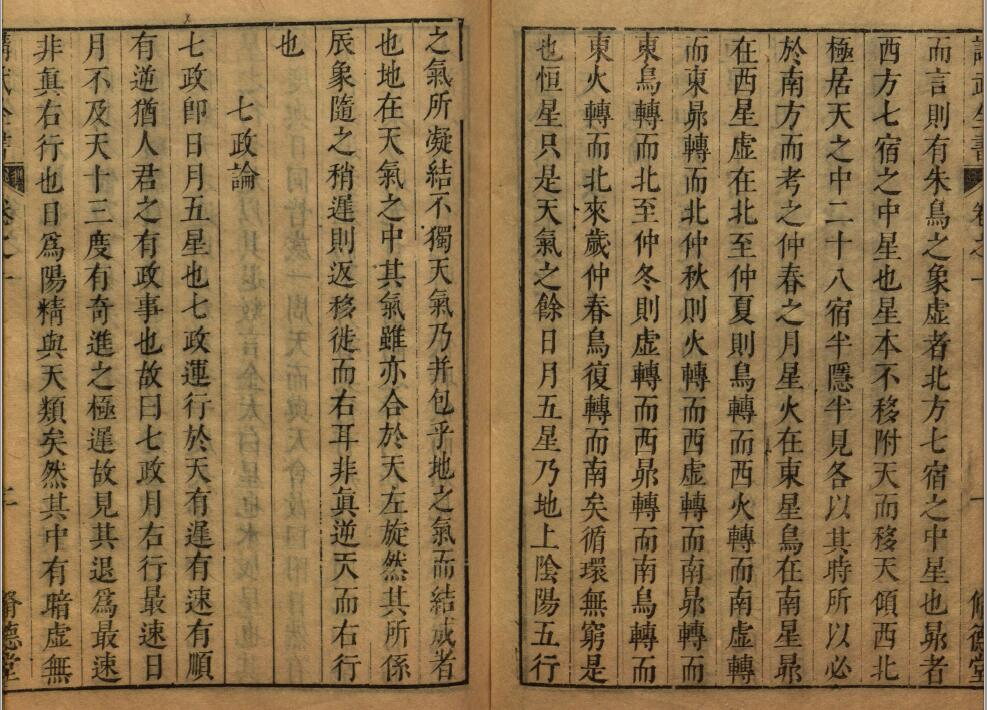 而言則有朱鳥之象虛者北方七宿之中星也昴者
西方七宿之中星也星本不移附天而移天傾西北
極居天之中二十八宿半隱半見各以其時所以必
於南方而考之仲春之月星火在東星鳥在南星昴
在西星虛在北至仲夏則鳥轉而西火轉而南虛轉
而東昴轉而北仲秋則火轉而西虛轉而南昴轉而
東鳥轉而北至仲冬則虛轉而西昴轉而南鳥轉而
東火轉而北來歲仲春鳥復轉而南矣循環無窮是
也恒星只是天氣之餘日月五星乃地上陰陽五行
之氣所凝結不獨天氣乃并包乎地之氣而結成者
也地在天氣之中其氣雖亦合於天左旋然其所係
辰象隨之稍遲則返移徙而右耳非眞逆天而右行
也
七政論
七政卽日月五星也七政運行於天有遲有速有順
有逆猶人君之有政事也故曰七政月右行最速日
月不及天十三度有奇進之極遲故見其退爲最速
非眞右行也日爲陽精與天類矣然其中有暗虛無